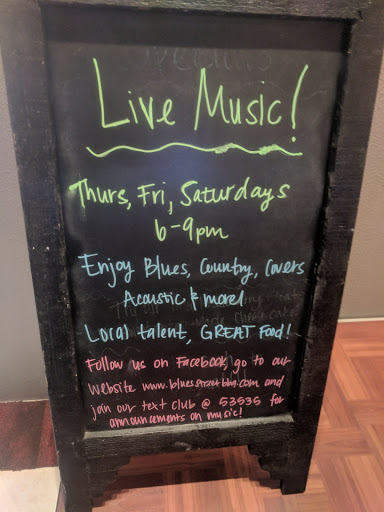 Live Music!
Thurs, Fri, Saturdays
6-9pm
Enjoy Blues, Country, Covers
Acoustic & more!
Local talent, GREAT Food!
Follow us on Facebook, go to our
website www.bluestreetbbq.com and
join our text club @ 53535 for
announcements on music!